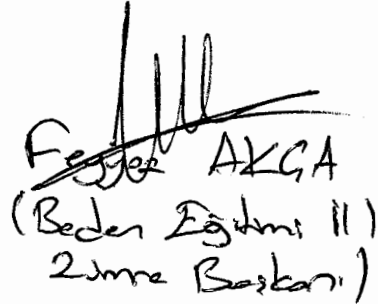 Feyyaz AKÇA
(Beden Eğitimi İl)
Zümre Başkanı)